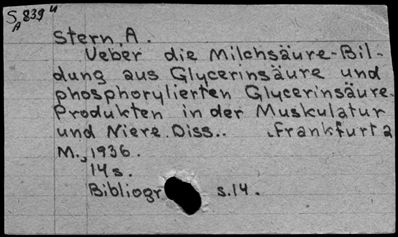 S 839 u
A
Stern, A.
Ueber die Milchsäure-Bil-
dung aus Glycerinsäure und
phosphorylierten Glycerinsäure-
Produkten in der Muskulatur
und Niere. Diss.. Frankfurt a
M., 1936.
14 s.
Bibliogr s.14.